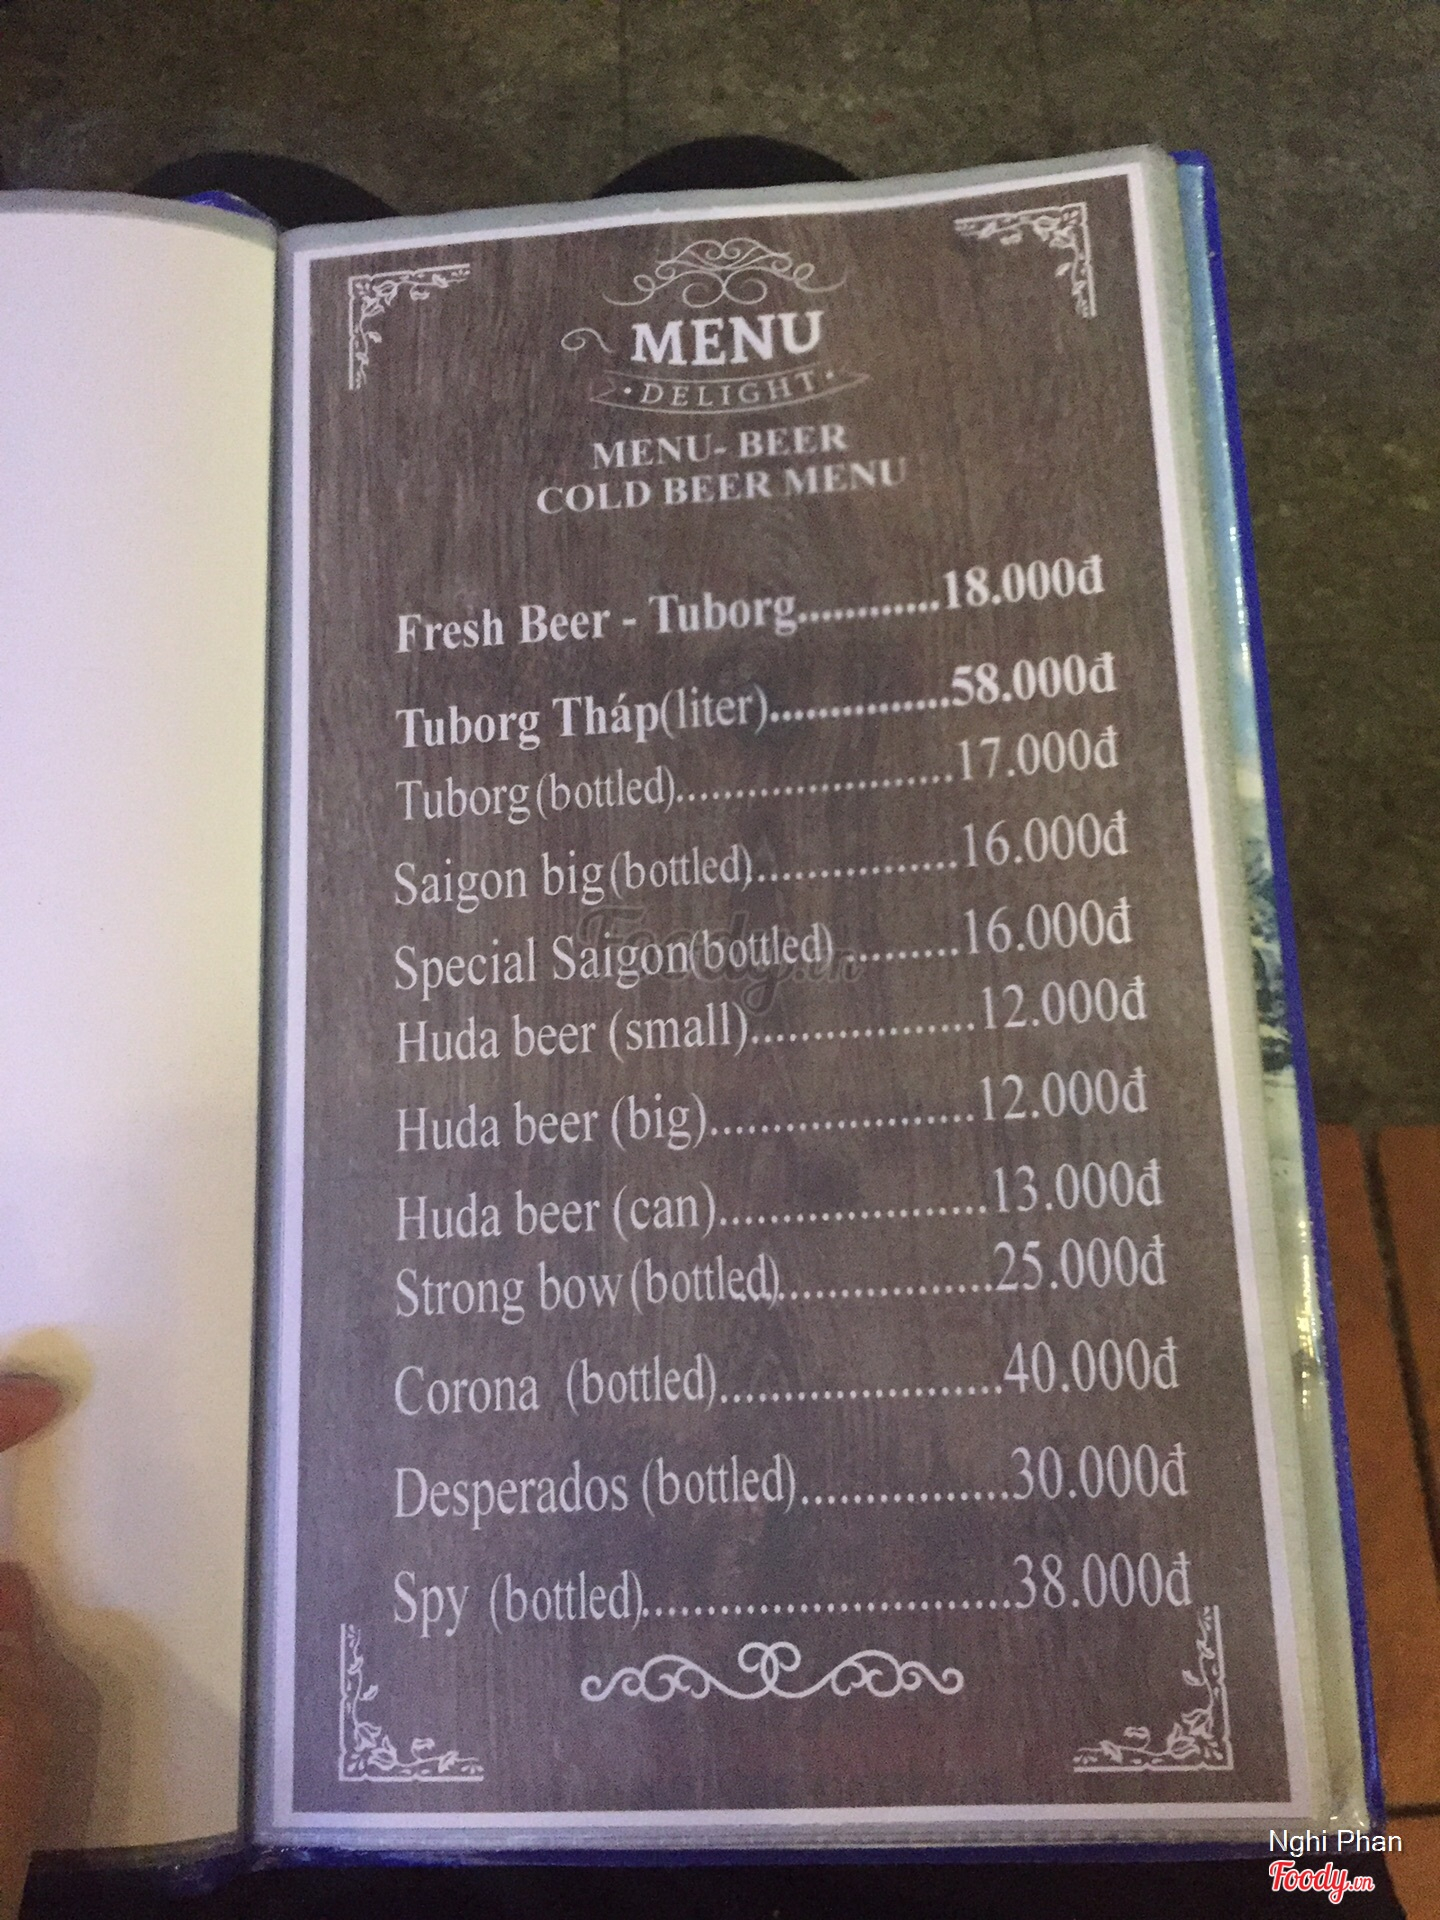 MENU
• DELIGHT •
MENU- BEER
COLD BEER MENU
Fresh Beer - Tuborg............18.000đ
Tuborg Tháp(liter)...............58.000đ
Tuborg(bottled)........................17.000đ
Saigon big(bottled)..................16.000đ
Special Saigon(bottled)..........16.000đ
Huda beer (small)...................12.000đ
Huda beer (big).....................12.000đ
Huda beer (can).....................13.000đ
Strong bow(bottled)..................25.000đ
Corona (bottled)......................40.000đ
Desperados (bottled)................30.000đ
Spy (bottled).............................38.000đ
Foody.vn
Nghi Phan
Foody.vn